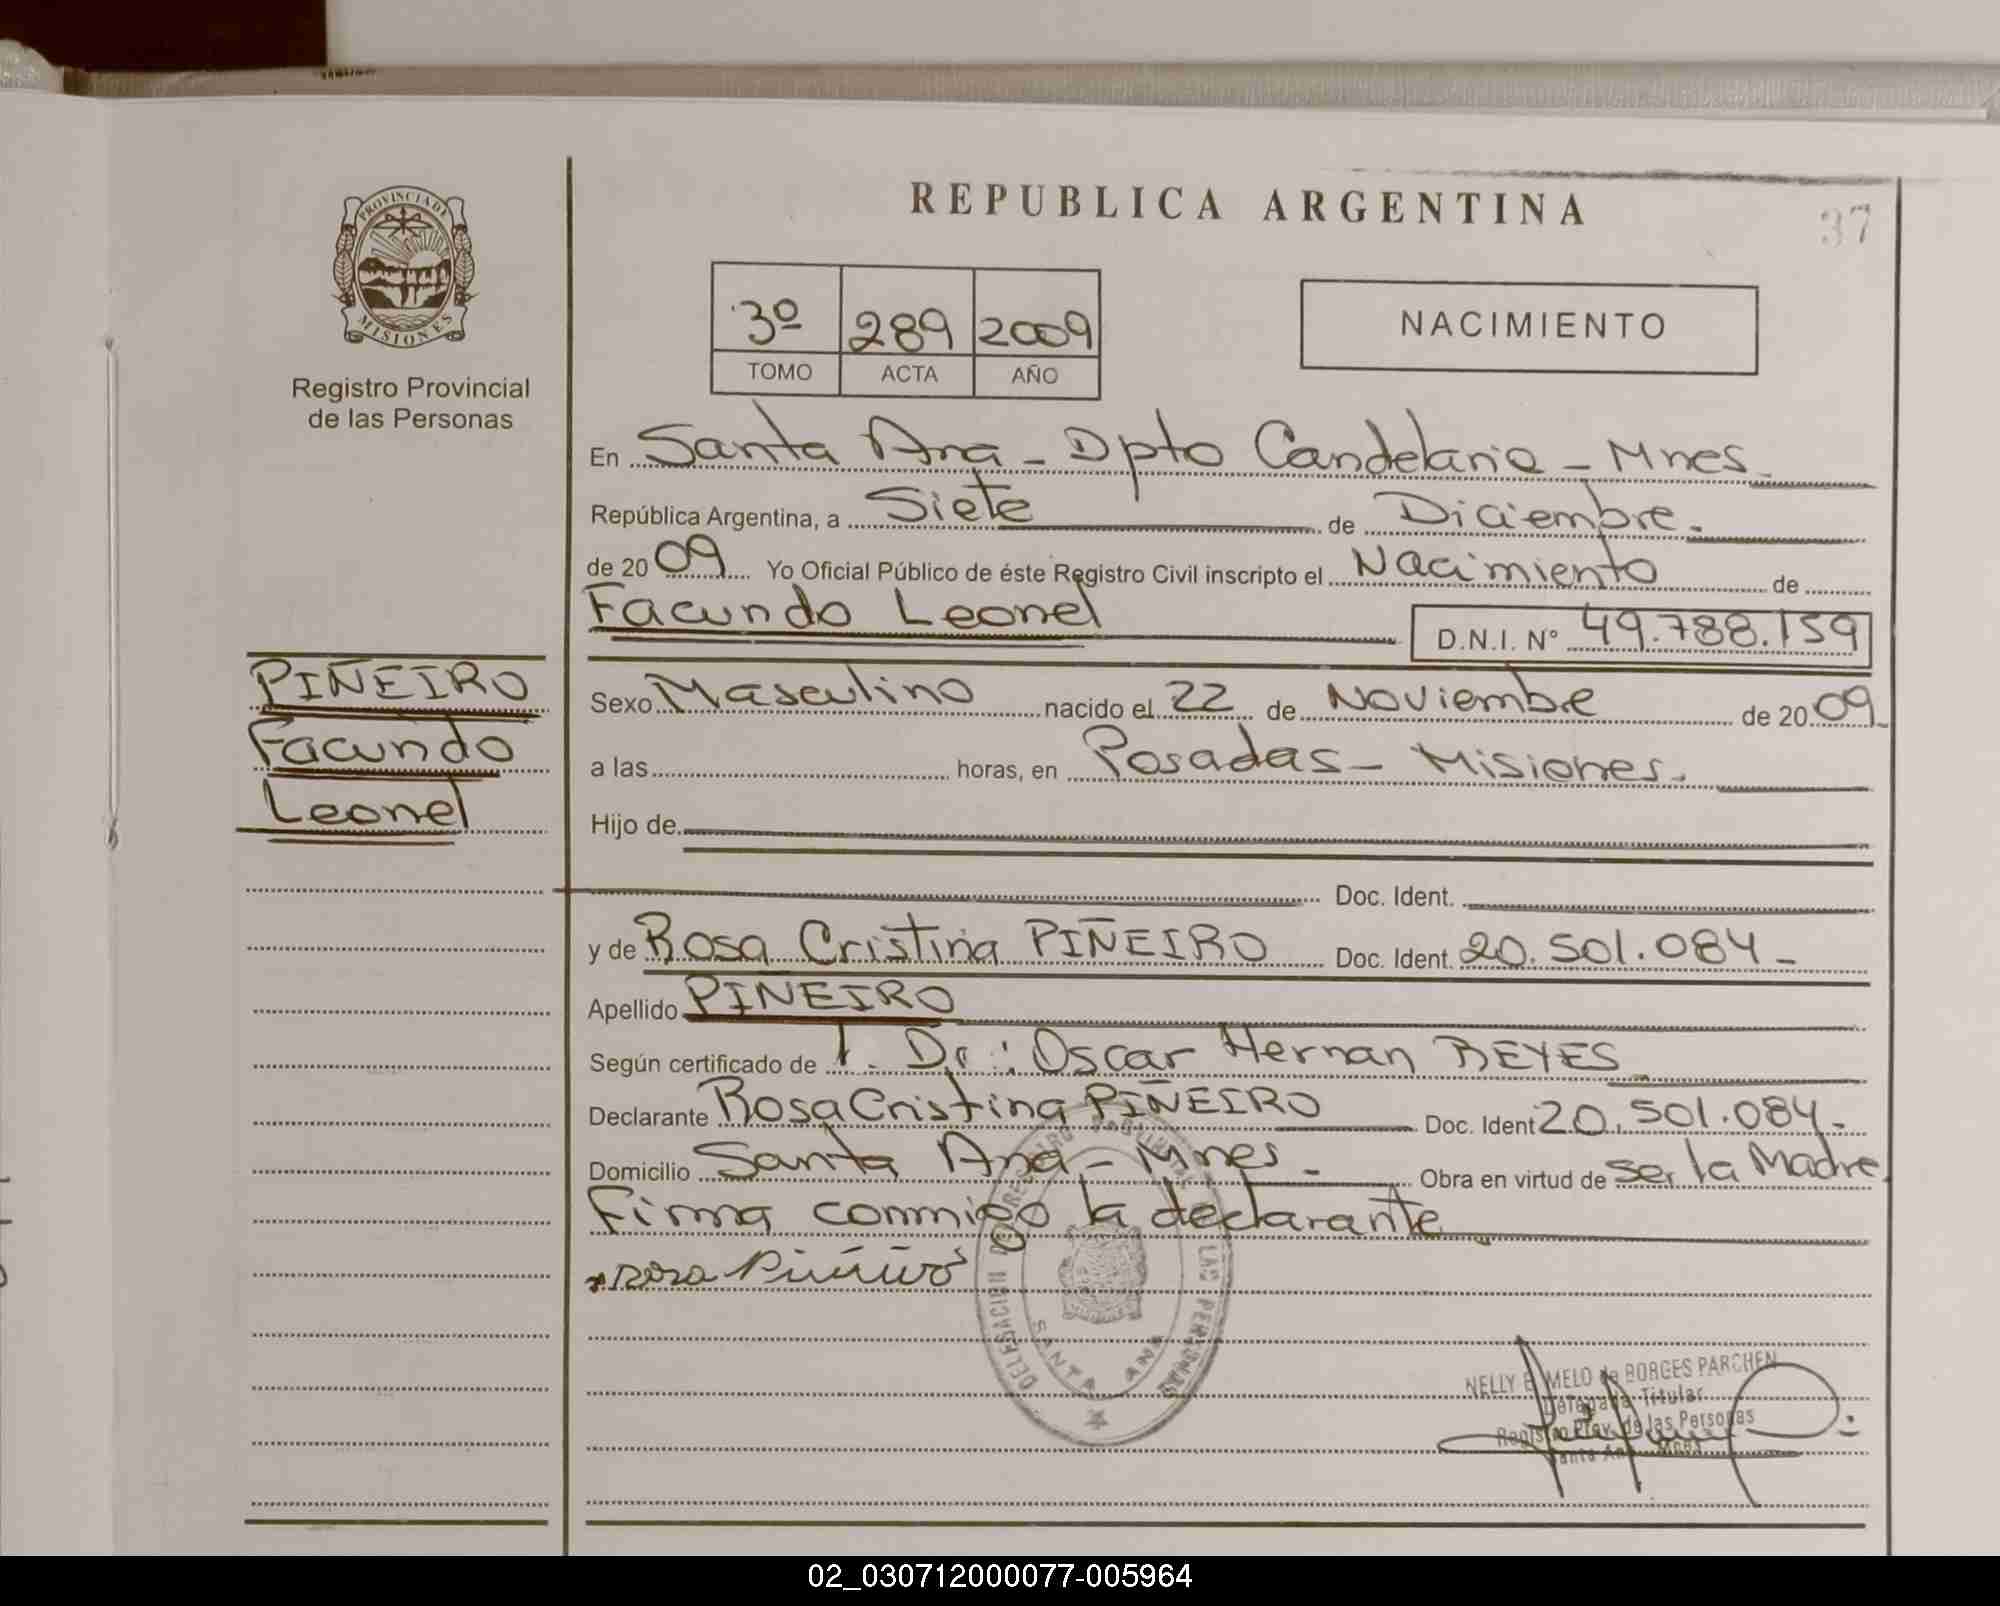 REPUBLICA ARGENTINA
37
PROVINCIA DE
MISIONES
Registro Provincial
de las Personas
3º 289 2009
TOMO ACTA AÑO
NACIMIENTO
En Santa Ana - Dpto Candelaria - Mnes.
República Argentina, a Siete de Diciembre.
de 2009 Yo Oficial Público de éste Registro Civil inscripto el Nacimiento de
Facundo Leonel D.N.I. Nº 49.788.159
PIÑEIRO
Facundo
Leonel
Sexo Masculino nacido el 22 de Noviembre de 2009.
a las horas, en Posadas - Misiones.
Hijo de
Doc. Ident.
y de Rosa Cristina PIÑEIRO Doc. Ident. 20.501.084 -
Apellido PIÑEIRO
Según certificado de 1. Dr.: Oscar Hernan REYES
Declarante Rosa Cristina PIÑEIRO Doc. Ident 20.501.084.-
Domicilio Santa Ana - Mnes. Obra en virtud de ser la Madre.
Firma conmigo la declarante.
Rosa Piñeiro
DELEGACION REGISTRO PROVINCIAL DE LAS PERSONAS
SANTA ANA
NELLY E. MELO de BORGES PARCHEN
Delegada Titular
Registro Prov. de las Personas
Santa Ana - Mnes
02_030712000077-005964